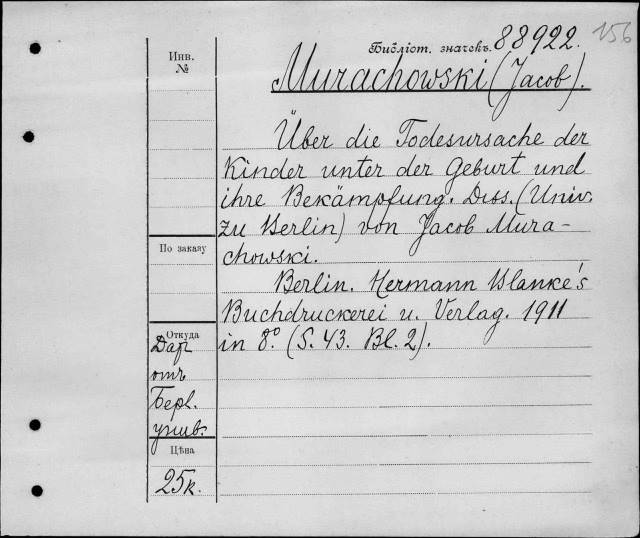 156
Библіот. значекъ. 88922.
Инв.
№
Murachowski (Jacob).
Über die Todesursache der
Kinder unter der Geburt und
ihre Bekämpfung. Diss. (Univ.
zu Berlin) von Jacob Mura-
chowski.
Berlin. Hermann Blanke's
Buchdruckerei u. Verlag. 1911
in 8.° (S. 43. Bl. 2).
По заказу
Откуда
Дар
отъ
Берл.
унив.
Цѣна
25к.